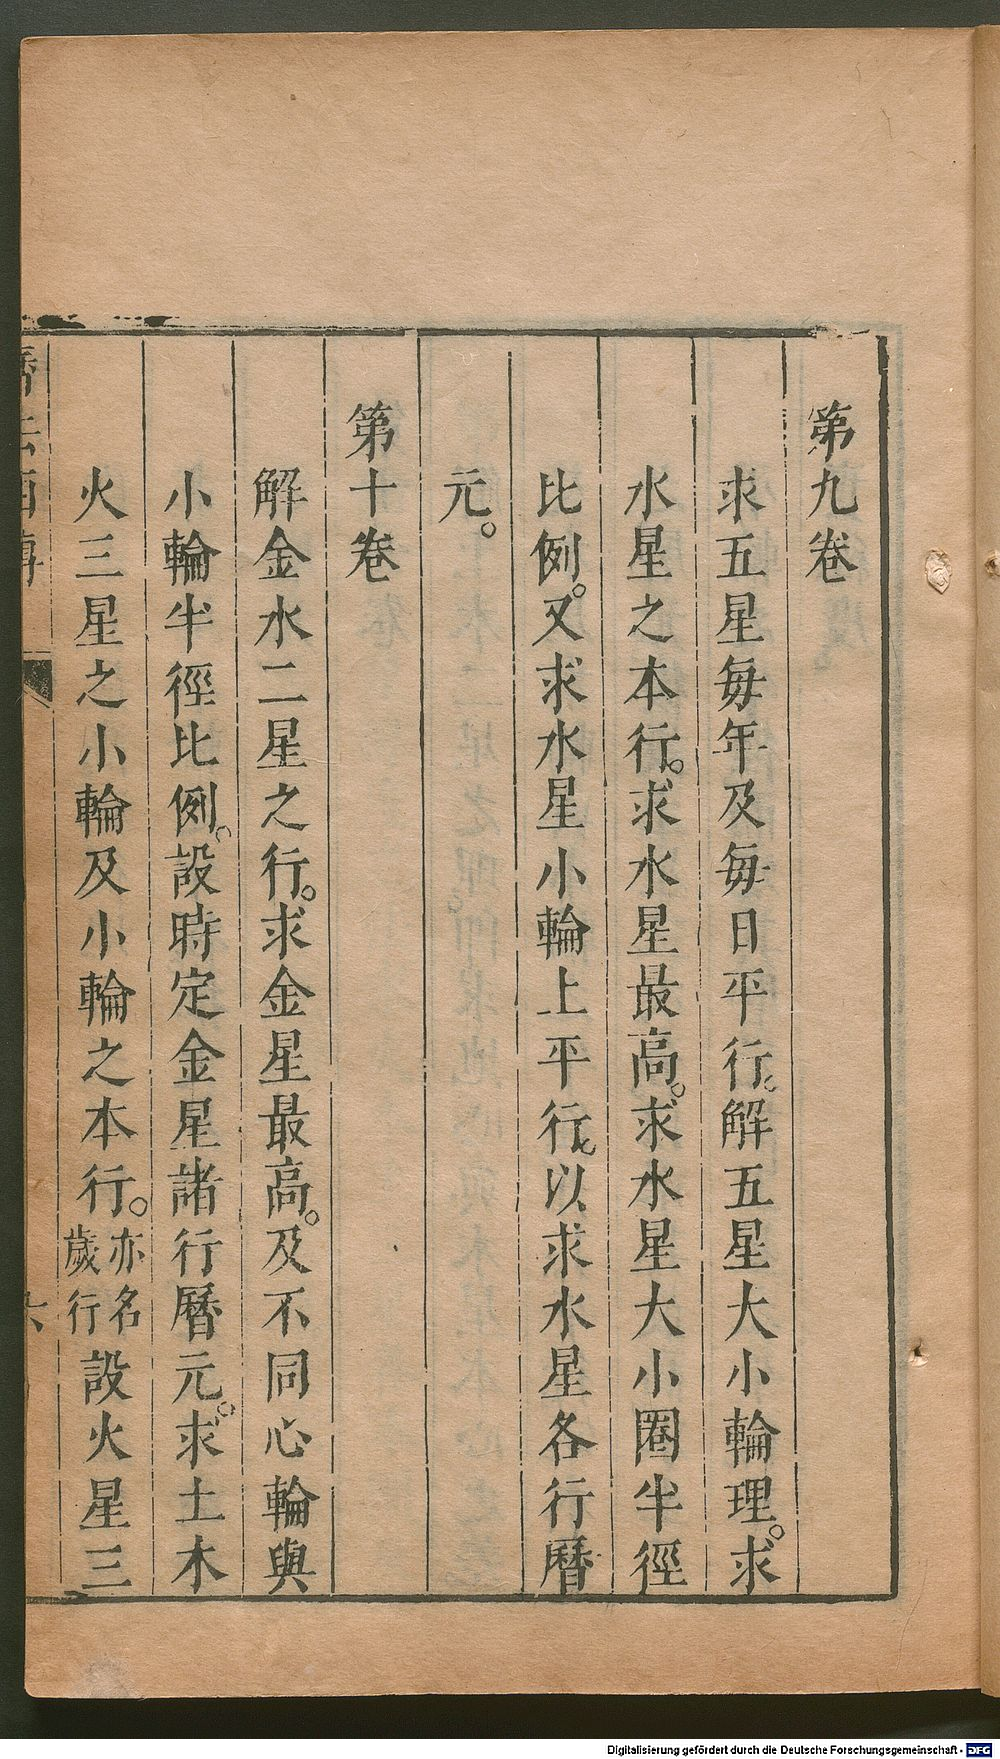 第九卷
求五星每年及每日平行。解五星大小輪理。求
水星之本行。求水星最高。求水星大小圈半徑
比例。又求水星小輪上平行。以求水星各行曆
元。
第十卷
解金水二星之行。求金星最高。及不同心輪與
小輪半徑比例。設時定金星諸行曆元。求土木
火三星之小輪及小輪之本行。亦名歲行設火星三
法西傳
六
Digitalisierung gefördert durch die Deutsche Forschungsgemeinschaft - DFG